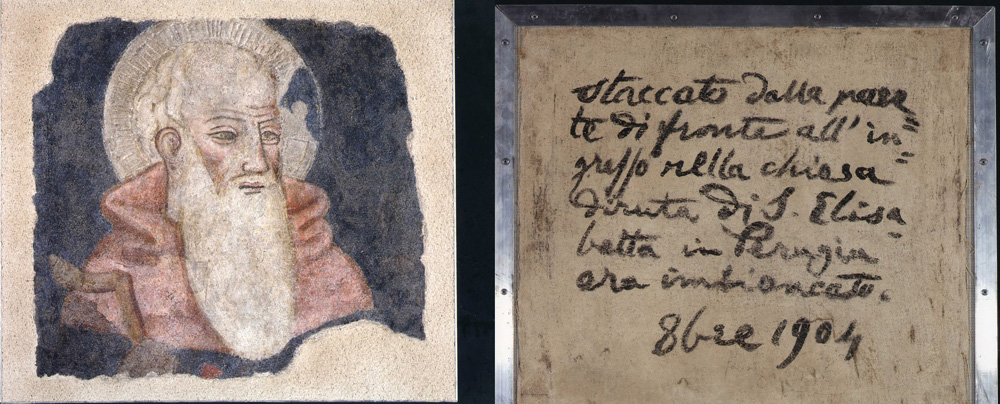 staccato dalla pare=
te di fronte all' in=
gresso nella chiesa
diruta di S. Elisa=
betta in Perugia
era imbiancato.
8bre 1904